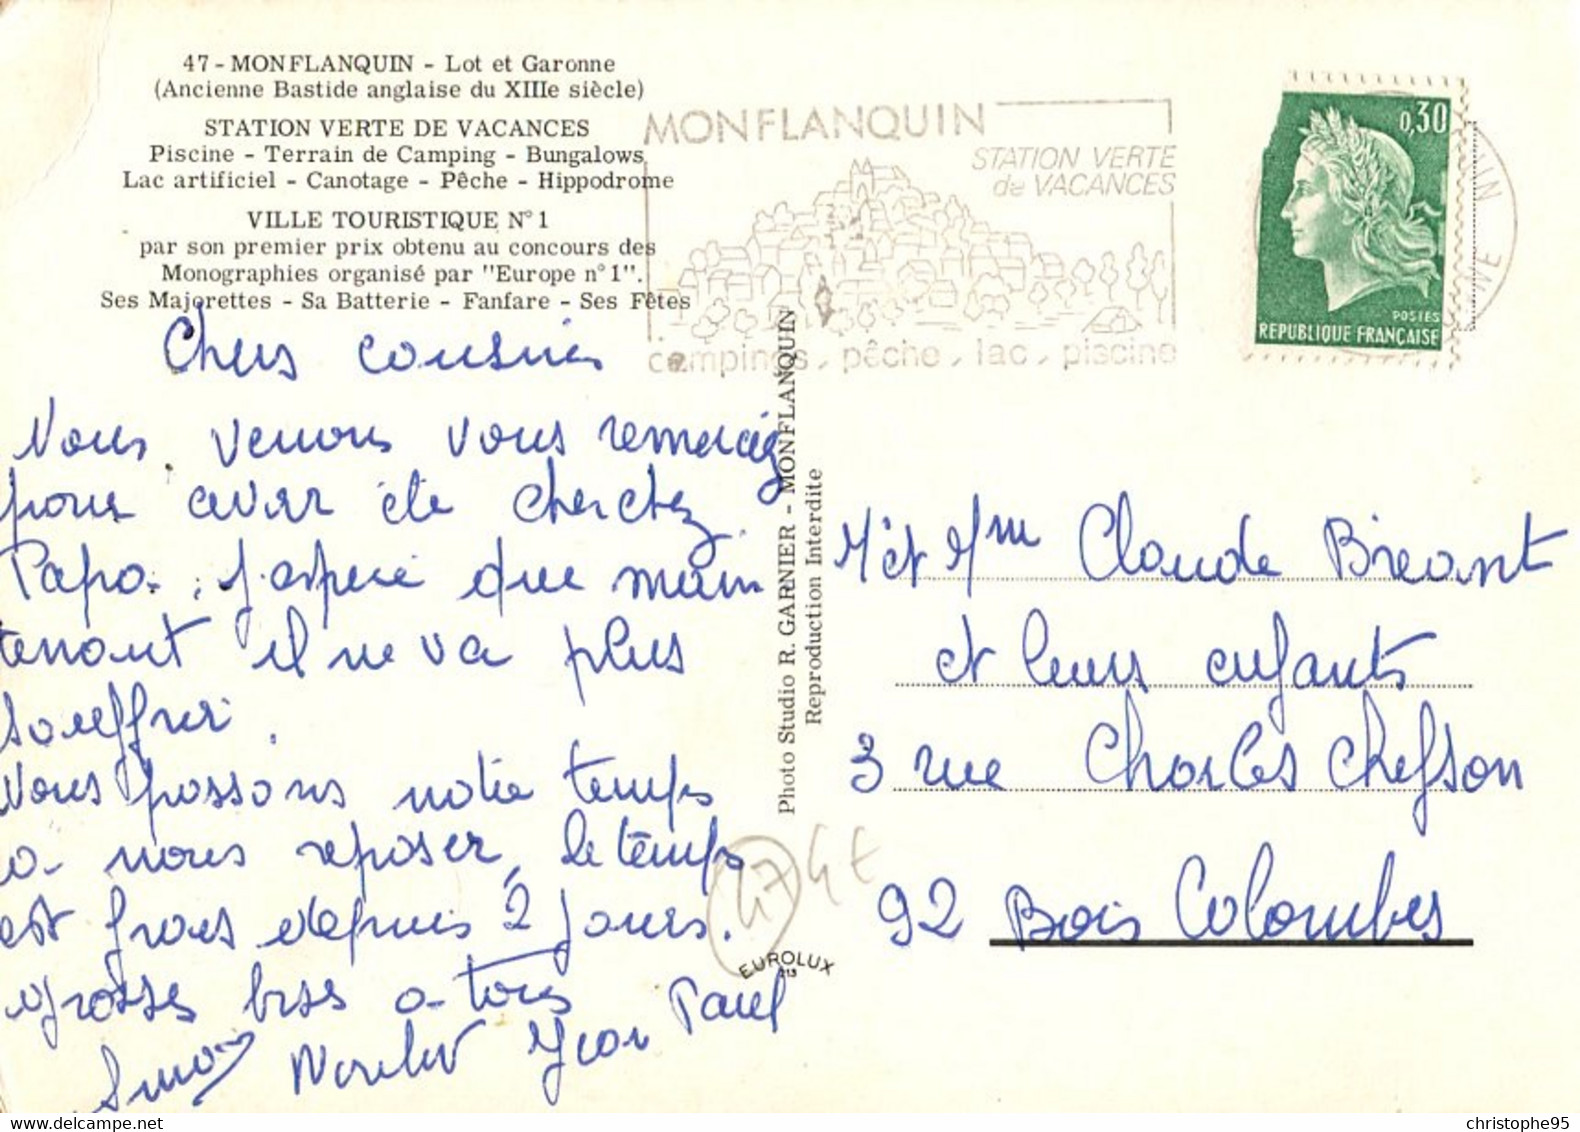 47 - MONFLANQUIN - Lot et Garonne
(Ancienne Bastide anglaise du XIIIe siècle)
STATION VERTE DE VACANCES
Piscine - Terrain de Camping - Bungalows
Lac artificiel - Canotage - Pêche - Hippodrome
VILLE TOURISTIQUE N° 1
par son premier prix obtenu au concours des
Monographies organisé par "Europe n° 1".
Ses Majorettes - Sa Batterie - Fanfare - Ses Fêtes
MONFLANQUIN
STATION VERTE
de VACANCES
campings, pêche, lac, piscine
0,30
POSTES
REPUBLIQUE FRANÇAISE
Chers cousins
Nous venons vous remerciez
pour avoir été cherchez
Papa. J'espère que main
tenant il ne va plus
souffrir.
Nous passons notre temps
a nous reposer, le temps
est frais depuis 2 jours.
grosses bises a tous
Jean Paul
Photo Studio R. GARNIER - MONFLANQUIN
Reproduction Interdite
Mr et Mme Claude Breant
et leurs enfants
3 rue Charles Chefson
92 Bois Colombes
47 4€
EUROLUX
213
christophe95